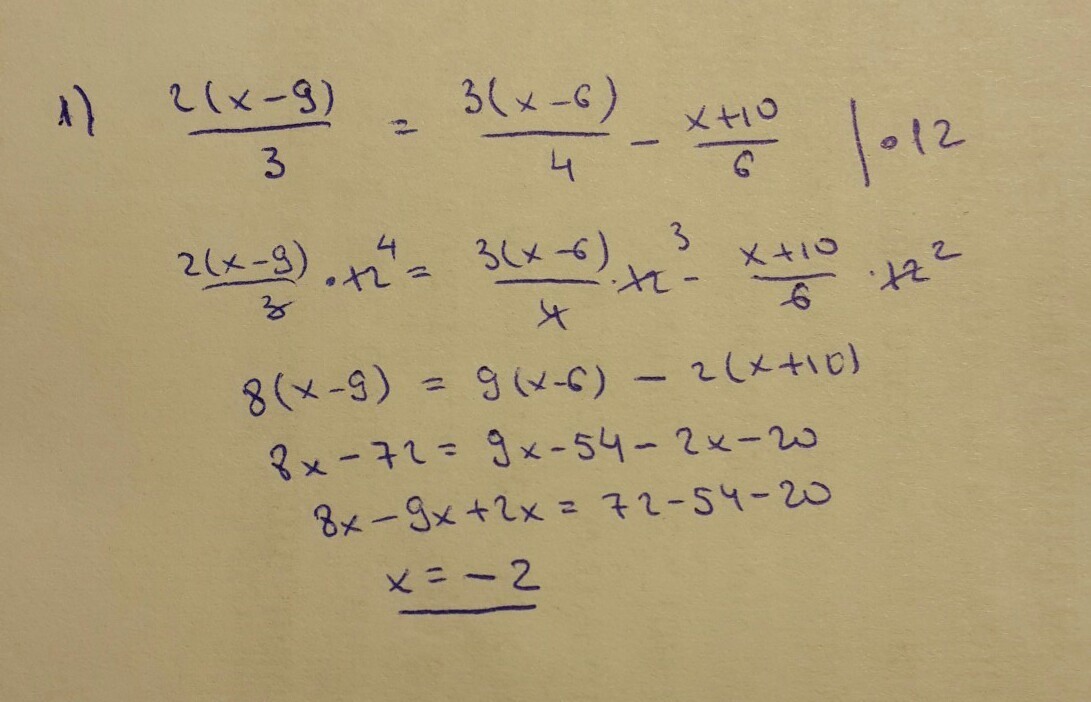 1) 2(x-9)/3 = 3(x-6)/4 - x+10/6 | • 12
2(x-9)/3 • 12 4 = 3(x-6)/4 · 12 3 - x+10/6 · 12 2
8(x-9) = 9(x-6) - 2(x+10)
8x - 72 = 9x - 54 - 2x - 20
8x - 9x + 2x = 72 - 54 - 20
x = - 2